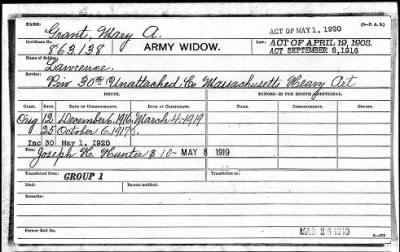 (3—P. & S.)
Name: Grant, Mary A.
ACT OF MAY 1, 1920
Certificate No. 863,138 ARMY WIDOW. Law: ACT OF APRIL 19, 1908.
ACT SEPTEMBER 8, 1916
Name of Soldier: Lawrence.
Service: Pvt 30th Unattached Co Massachusetts Heavy Art
ISSUES. MINORS—$2 PER MONTH ADDITIONAL.
CLASS. RATE. DATE OF COMMENCEMENT. DATE OF CERTIFICATE. DATE OF COMMENCEMENT.
Orig 12 December 6, 1916 March 4-1919
25 October 6, 1917
Inc 30 May 1, 1920
Joseph H. Hunter $10- MAY 8 1919
Transferred from: GROUP 1 Transferred to:
Died: Bureau notified:
Remarks:
Former Roll No. MAR 26 1919